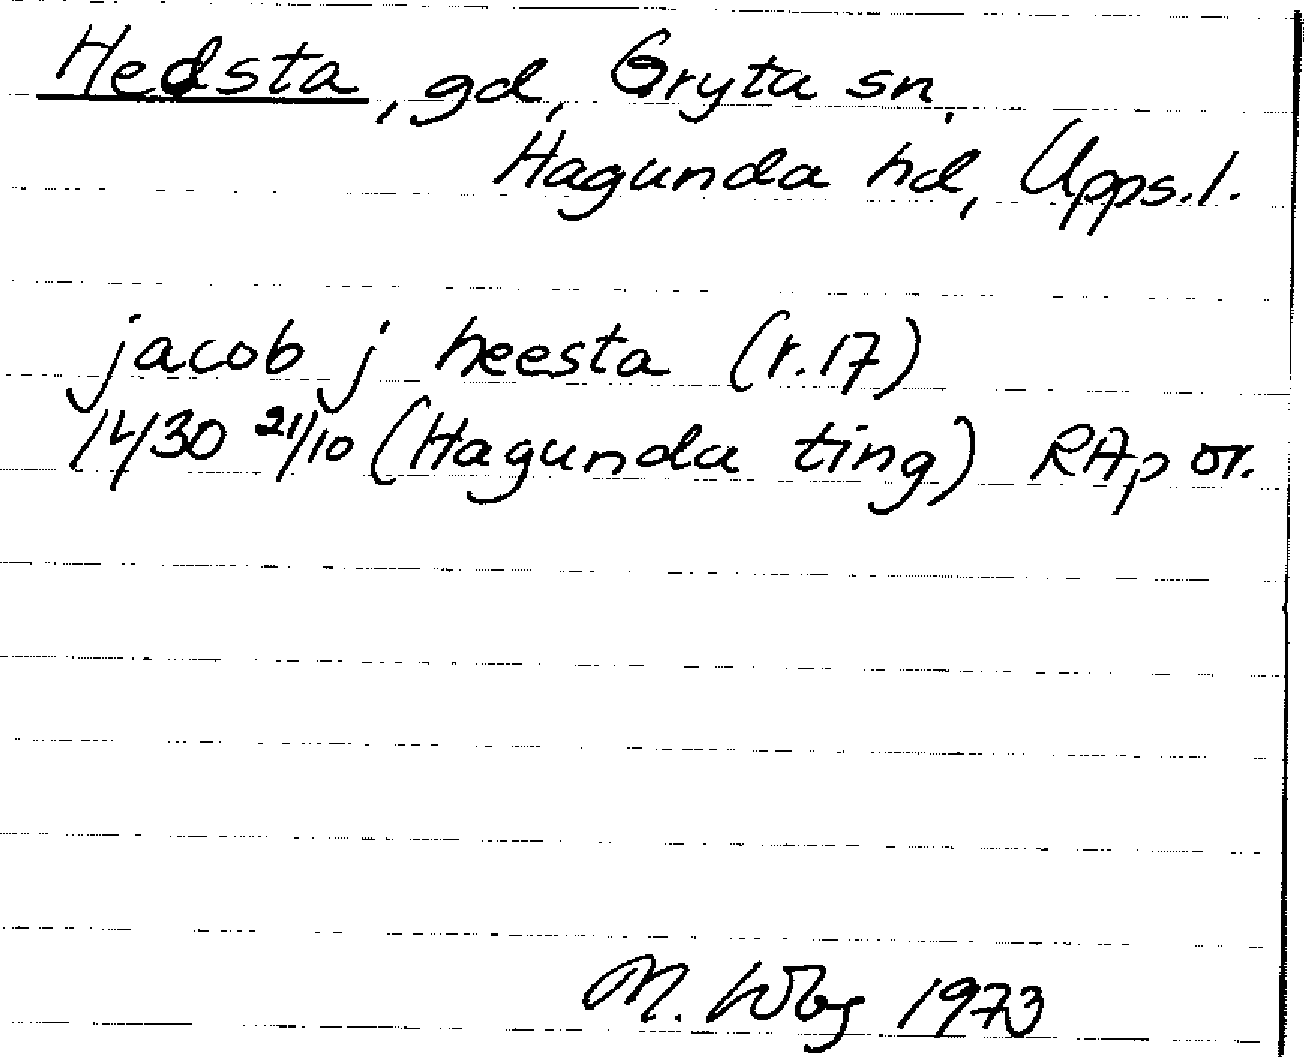 Hedsta, gd, Gryta sn,
Hagunda hd, Upps. l.
jacob j heesta (r. 17)
1430 21/10 (Hagunda ting) RAp or.
M. Wbg 1973